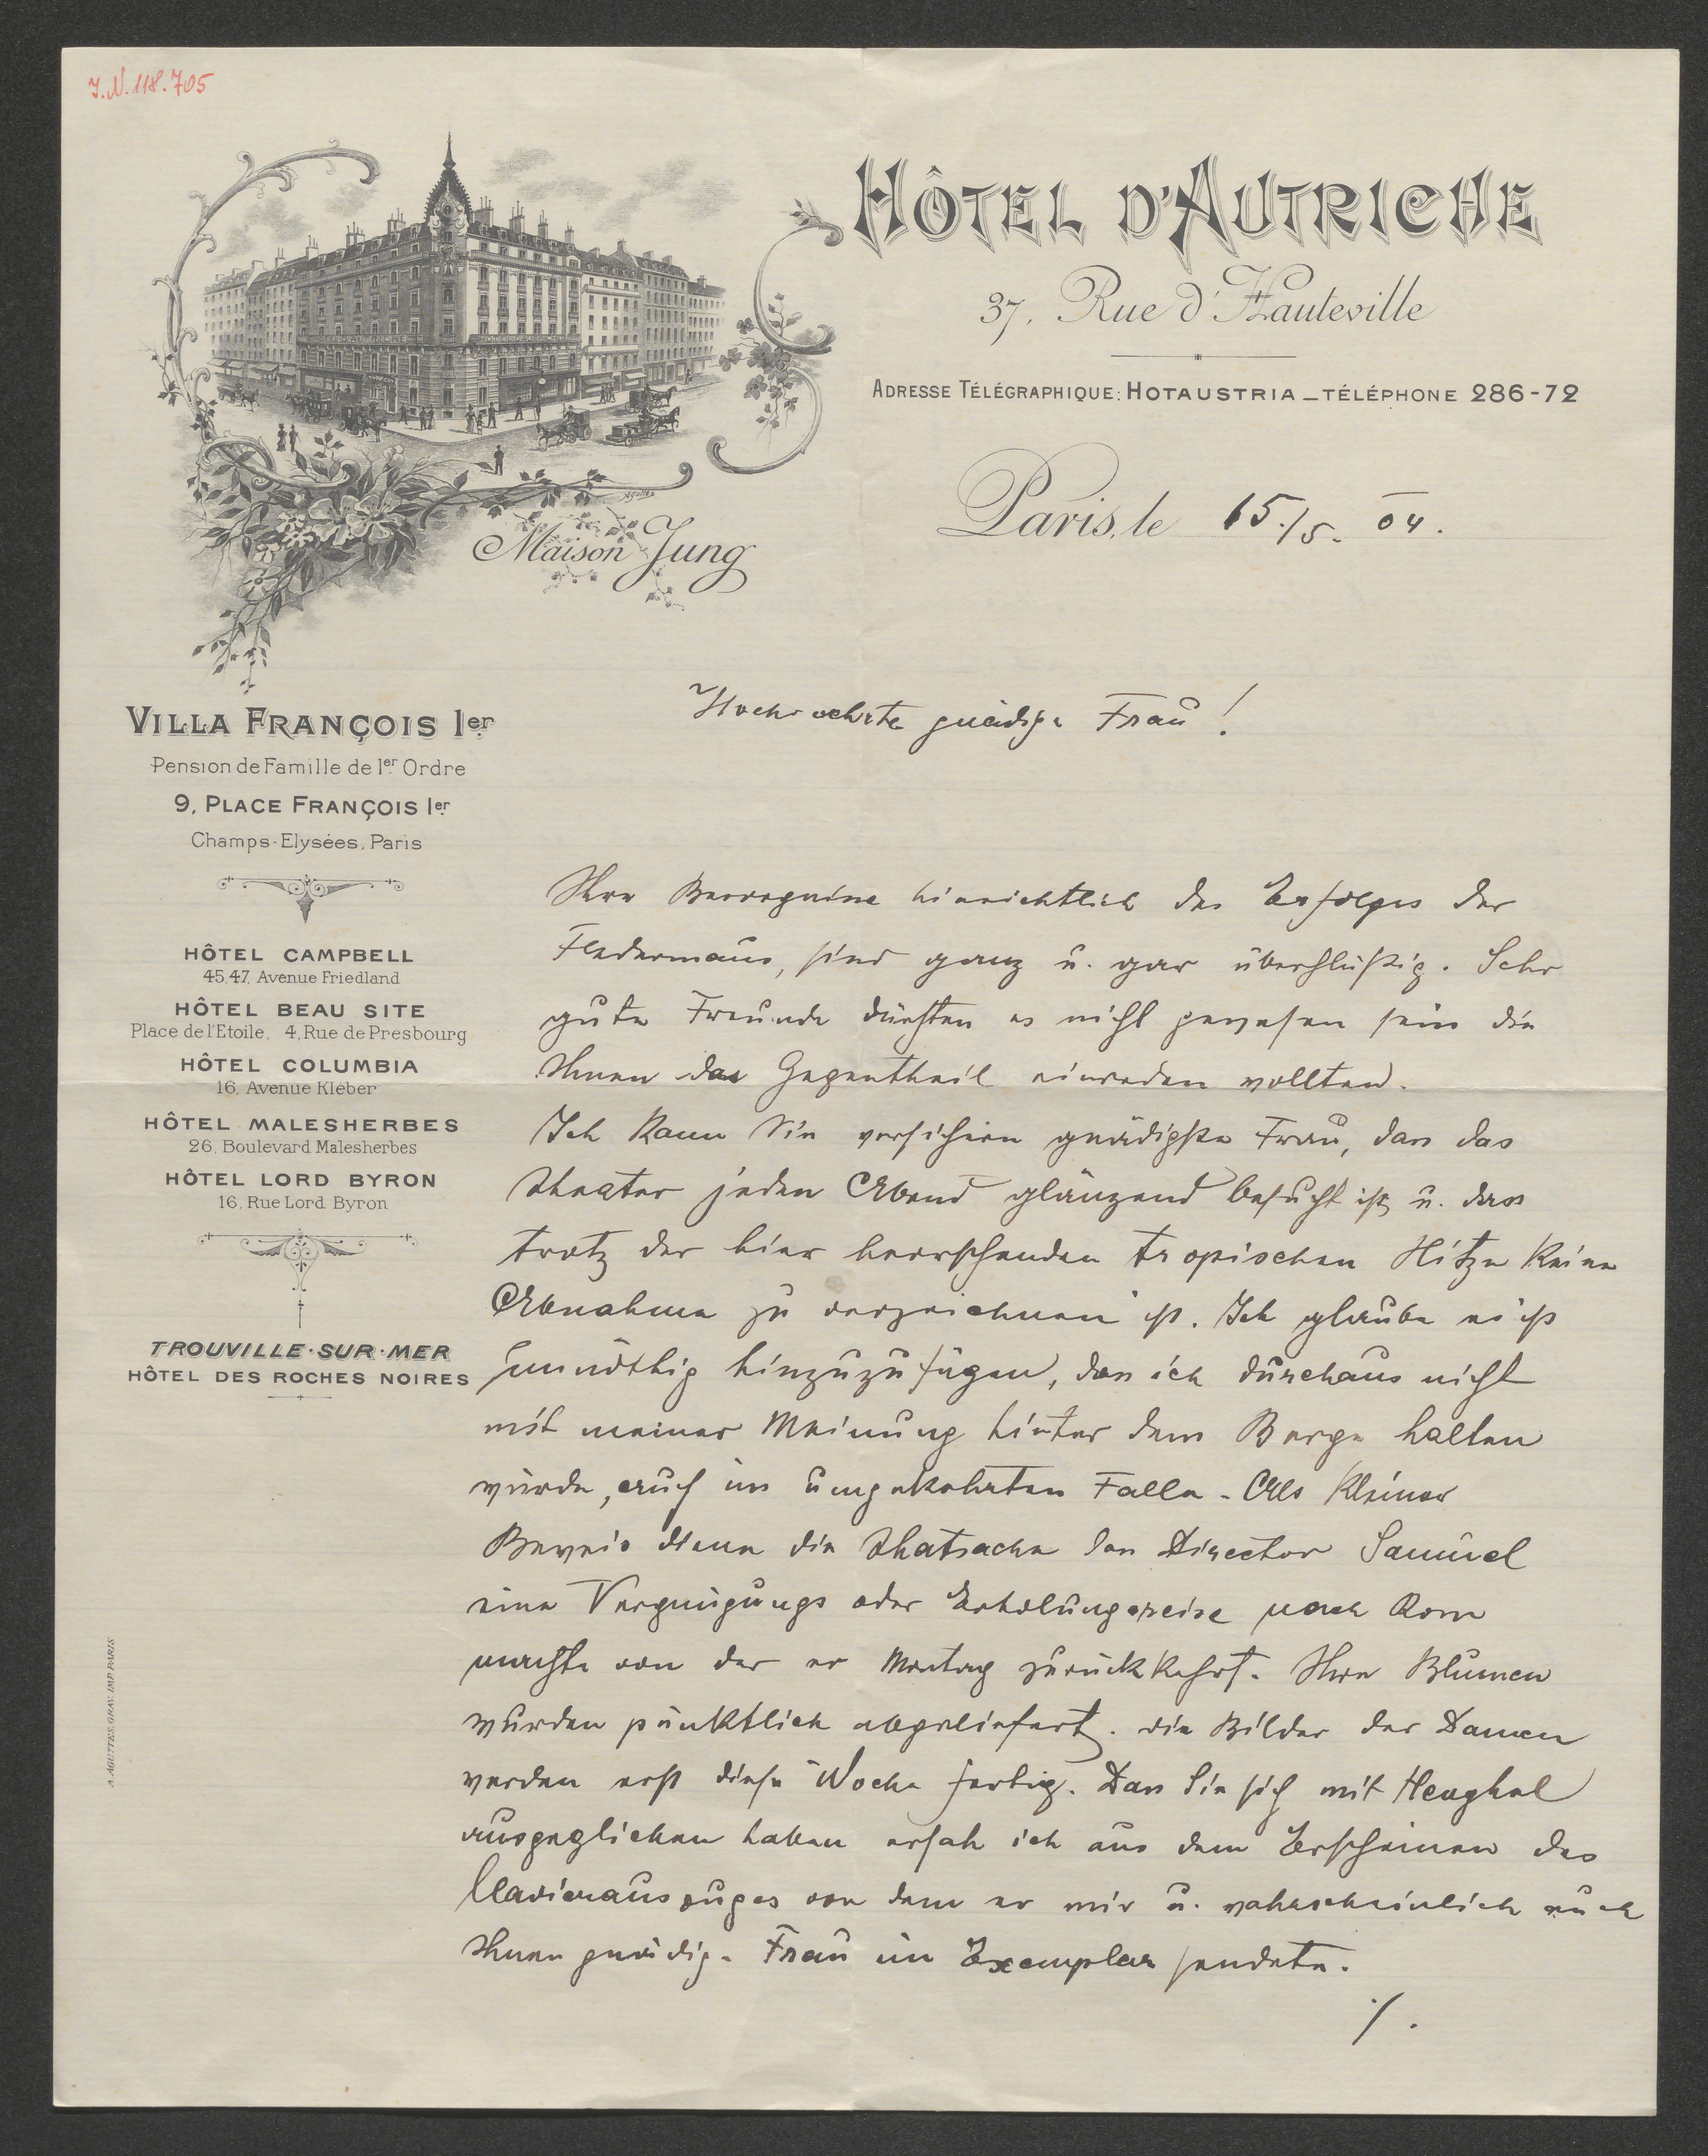 I.N. 118.705
HÔTEL D'AUTRICHE
37, Rue d'Hauteville
ADRESSE TÉLÉGRAPHIQUE: HOTAUSTRIA_TÉLÉPHONE 286-72
Maison Jung
Paris, le 15./5. 04.
VILLA FRANÇOIS 1er
Pension de Famille de 1er Ordre
9, PLACE FRANÇOIS 1er
Champs-Elysées, Paris
HÔTEL CAMPBELL
45.47, Avenue Friedland
HÔTEL BEAU SITE
Place de l'Etoile, 4, Rue de Presbourg
HÔTEL COLUMBIA
16, Avenue Kléber
HÔTEL MALESHERBES
26, Boulevard Malesherbes
HÔTEL LORD BYRON
16, Rue Lord Byron
TROUVILLE·SUR·MER
HÔTEL DES ROCHES NOIRES
A. AGUTTES. GRAV. IMP. PARIS
Hochverehrte gnädige Frau!
Ihre Besorgnisse hinsichtlich des Erfolges der
Fledermaus, sind ganz u. gar überflüßig. Sehr
gute Freunde dürften es nicht gewesen sein die
Ihnen das Gegentheil einreden wollten.
Ich kann Sie versichern gnädigste Frau, dass das
Theater jeden Abend glänzend besucht ist, u. dass
trotz der hier herrschenden tropischen Hitze keine
Abnahme zu verzeichnen ist. Ich glaube es ist
unnöthig hinzuzufügen, dass ich durchaus nicht
mit meiner Meinung hinter dem Berge halten
würde, auch im umgekehrten Falle. Als kleiner
Beweis diene die Thatsache dass Director Samuel
eine Vergnügungs oder Erholungsreise nach Rom
machte von der er Montag zurückkehrt. Ihre Blumen
wurden pünktlich abgeliefert. Die Bilder der Damen
werden erst diese Woche fertig. Dass Sie sich mit Heughel
ausgeglichen haben ersah ich aus dem Erscheinen des
Clavierauszuges von dem er mir u. wahrscheinlich auch
Ihnen gnädige Frau ein Exemplar sendete.
./.